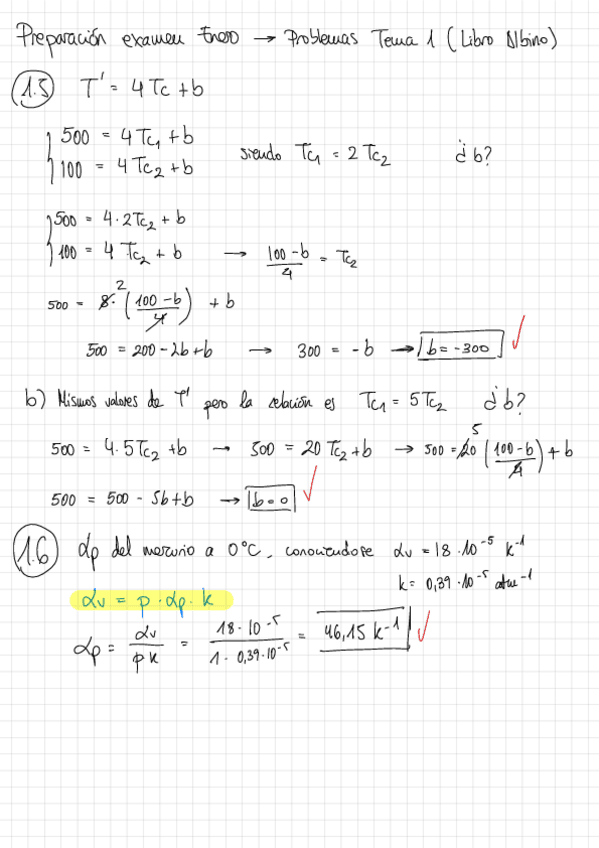 Preparación examen Enero → Problemas Tema 1 (Libro Albino)
1.5 T' = 4Tc + b
500 = 4Tc1 + b
100 = 4Tc2 + b siendo Tc1 = 2Tc2 ¿b?
500 = 4·2Tc2 + b
100 = 4Tc2 + b → (100-b)/4 = Tc2
500 = 8·2 ((100-b)/4) + b
500 = 200 - 2b + b → 300 = -b → b = -300 ✓
b) Mismos valores de T' pero la relación es Tc1 = 5Tc2 ¿b?
500 = 4·5Tc2 + b → 500 = 20Tc2 + b → 500 = 20 5 ((100-b)/4) + b
500 = 500 - 5b + b → b = 0 ✓
1.6 αp del mercurio a 0°C, conociendose αv = 18·10⁻⁵ k⁻¹
k = 0,39·10⁻⁵ atm⁻¹
αv = p · αp · k
αp = αv/(p k) = (18·10⁻⁵)/(1·0,39·10⁻⁵) = 46,15 k⁻¹ ✓